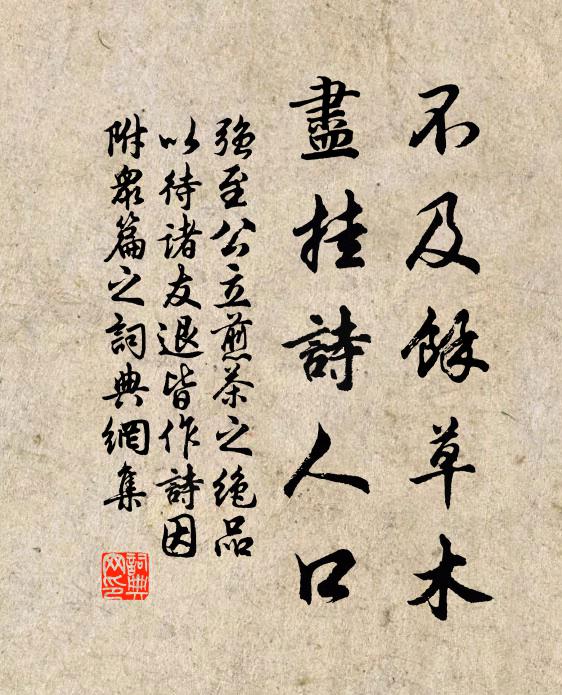 不及餘草木
盡挂詩人口
強至公立煎茶之絶品
以待諸友退皆作詩因
附衆篇之詞典網集
詞典网印